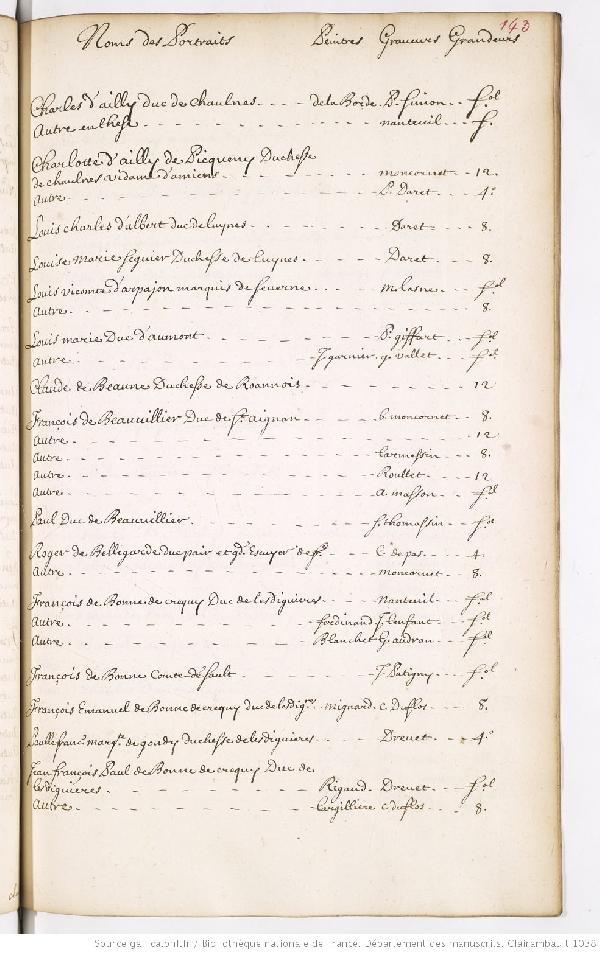 143
Noms des Portraits Peintres Graueurs Grandeurs
Charles d'ailly duc de chaulnes. - - - de la Borde. P. Simon - - fol
Autre en these - - - nanteuil - - f.
Charlotte d'ailly de Picqueny Duchesse
de chaulnes vidame d'amiens - - - moncornet - - 12
Autre - - - P. Daret - - 4°
Louis charles d'albert duc de luynes - - - Daret - - 8.
Louise Marie Seguier Duchesse de Luynes - - - Daret - - 8.
Louis vicomte d'arpajon marquis de seuerac - - - M. lasne - - fol
Autre - - - 8.
Louis marie Duc d'aumont - - - P. giffart - - fol
autre - - - J. garnier. g. vallet - - fol
Claude de Beaune Duchesse de Roannois - - - 12
François de Beauuillier Duc de St. aignan - - - b. moncornet - - 8.
Autre - - - 12
Autre - - - Larmessin - - 8.
Autre - - - Roullet - - 12
Autre - - - a. masson - - fol
Paul Duc de Beauuillier. - - - S. thomassin - - fol
Roger de Bellegarde duc pair et gd. Escuyer de fr. - - - C. de pas - - 4.
Autre - - - moncornet - - 8.
François de Bonne de crequy Duc de lesdiguieres - - - Nanteuil - - fol
Autre - - - ferdinand J. lenfant - - fol
Autre - - - Blanchet G. audran - - fol
François de Bonne Comte de Sault - - - J. Patigny - - fol
François Emanuel de Bonne de crequy duc de lesdig. mignard. c. Duflos - - 8.
Paulle franc. marg. de gondy duchesse de lesdiguieres - - - Dreuet - - 4°
Jean françois Paul de Bonne de crequy Duc de
lesdiguieres - - - Rigaud. Dreuet - - fol
Autre - - - Largilliere c. duflos - - 8.
Source gallica.bnf.fr / Bibliothèque nationale de France. Département des manuscrits. Clairambault 1038